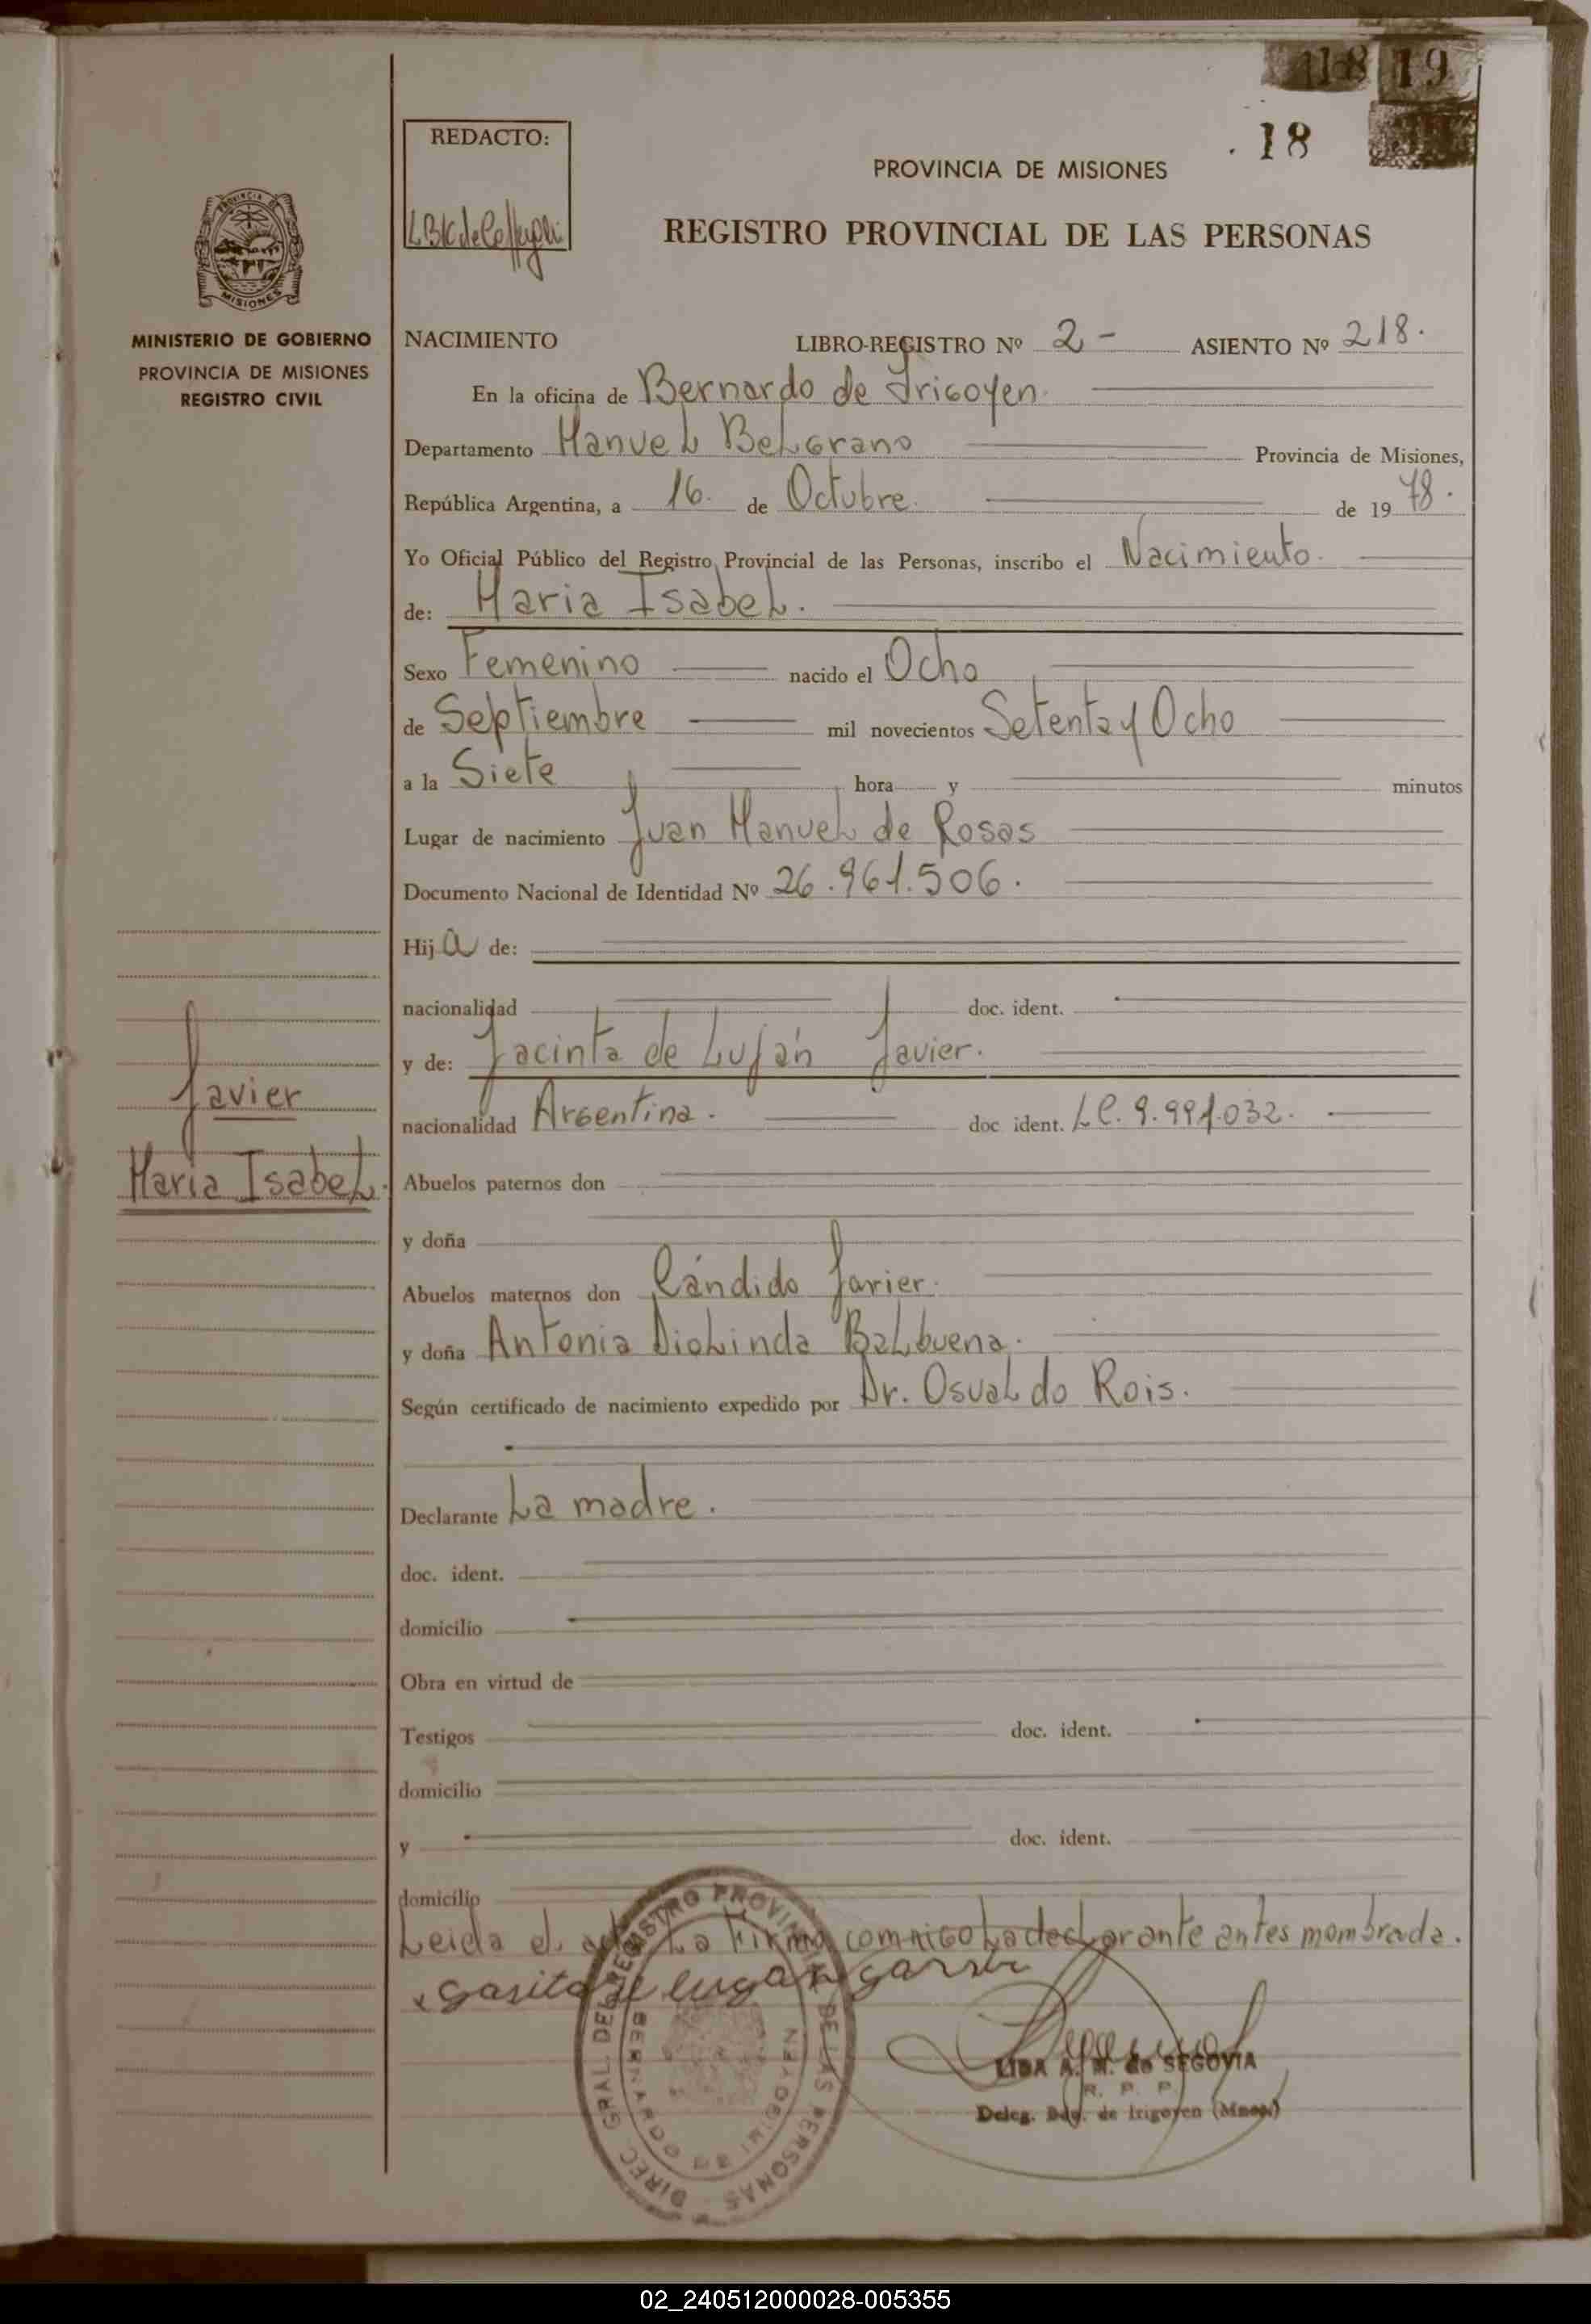 18 19
18
REDACTO:
PROVINCIA DE MISIONES
REGISTRO PROVINCIAL DE LAS PERSONAS
MINISTERIO DE GOBIERNO
PROVINCIA DE MISIONES
REGISTRO CIVIL
NACIMIENTO LIBRO-REGISTRO Nº 2 - ASIENTO Nº 218.
En la oficina de Bernardo de Irigoyen.
Departamento Manuel Belgrano Provincia de Misiones,
República Argentina, a 16. de Octubre. de 19 78.
Yo Oficial Público del Registro Provincial de las Personas, inscribo el Nacimiento.
de: Maria Isabel.
Sexo Femenino nacido el Ocho
de Septiembre mil novecientos Setenta y Ocho
a la Siete hora y minutos
Lugar de nacimiento Juan Manuel de Rosas
Documento Nacional de Identidad Nº 26.961.506.
Hij a de:
nacionalidad doc. ident.
y de: Jacinta de Luján Javier.
nacionalidad Argentina. doc ident. LC. 9.991.032.
Javier
Maria Isabel.
Abuelos paternos don
y doña
Abuelos maternos don Cándido Javier.
y doña Antonia Diolinda Balbuena.
Según certificado de nacimiento expedido por Dr. Osvaldo Rois.
Declarante La madre.
doc. ident.
domicilio
Obra en virtud de
Testigos doc. ident.
domicilio
y doc. ident.
domicilio
Leida el acta La Firma comnigo La declarante antes mombrada.
DIREC. GRAL DEL REGISTRO PROVINCIAL DE LAS PERSONAS
BERNARDO DE IRIGOYEN
LIDA A. M. de SEGOVIA
R. P. P.
Deleg. Bdo. de Irigoyen (Mnes)
02_240512000028-005355